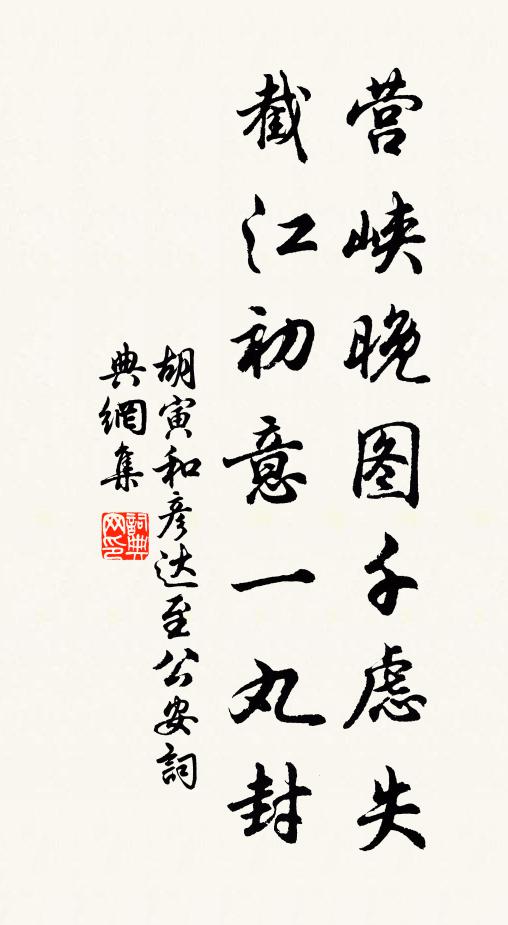 营峡晚图千虑失
截江初意一丸封
胡寅和彦达至公安詞
典網集
詞典网印